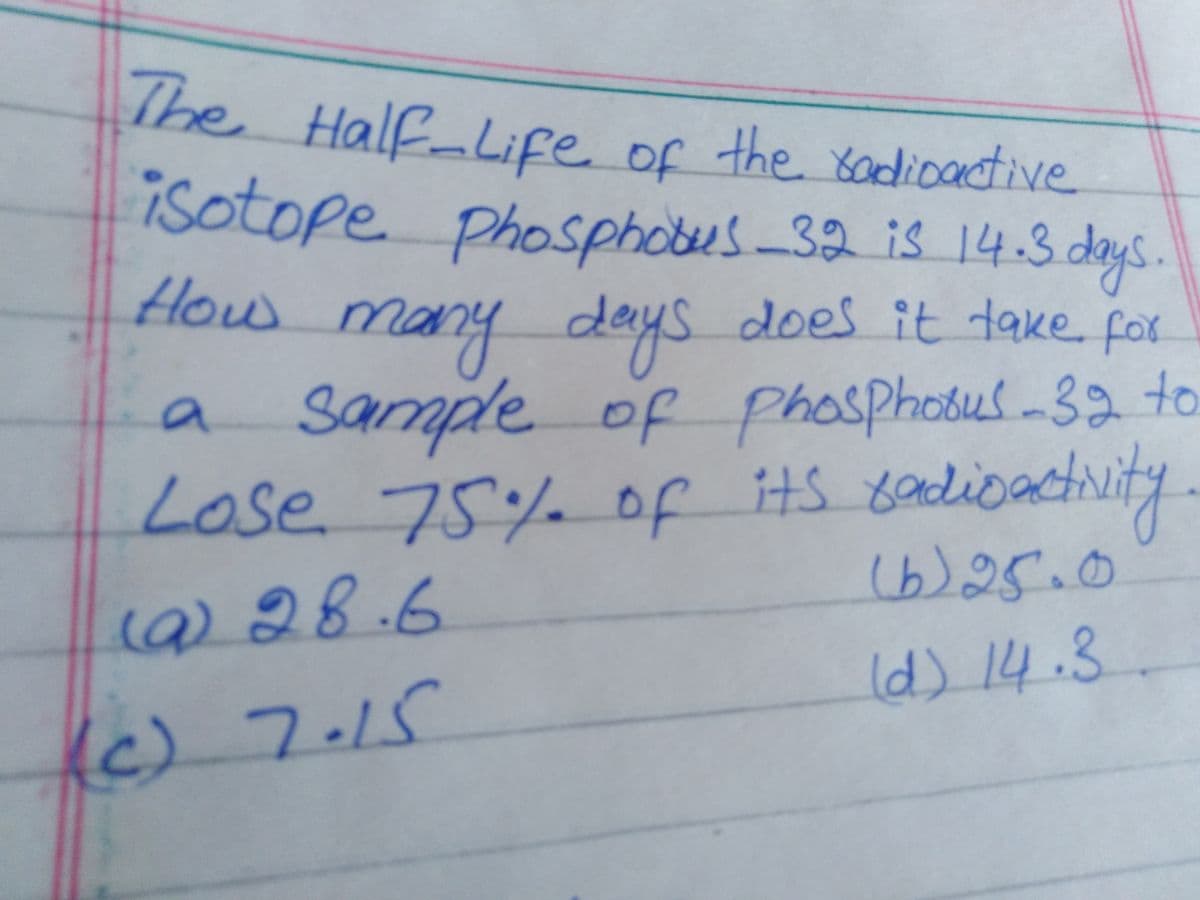 The Half-Life of the radioactive
isotope phosphorus-32 is 14.3 days.
How many days does it take for
a sample of phosphorus-32 to
Lose 75% of its radioactivity.
(a) 28.6 (b) 25.0
(c) 7.15 (d) 14.3.